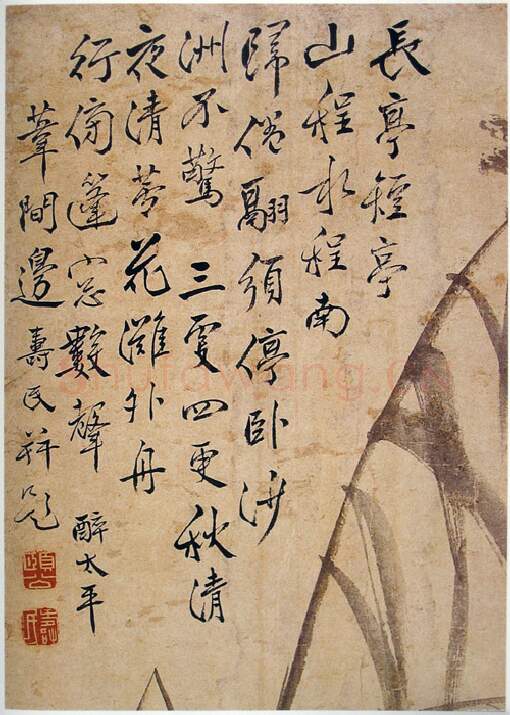 長亭短亭
山程水程南
歸倦翮須停卧沙
洲不驚 三更四更秋清
夜清蓼花灘外舟
行傍篷窓數聲 醉太平
葦間邊壽民并題
頤公
壽民
shufawang.cn